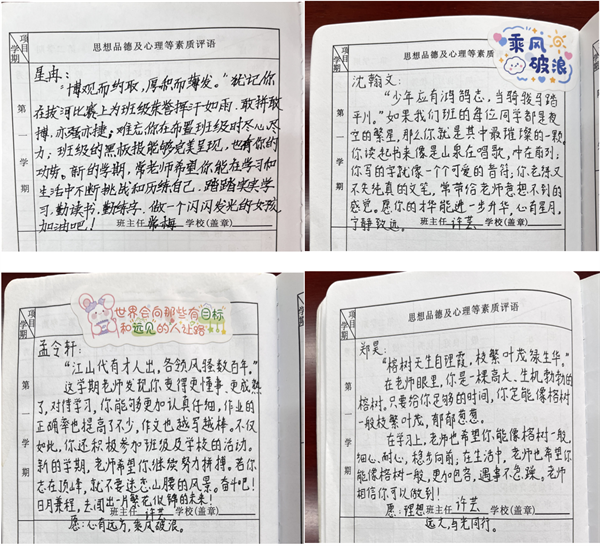 项目
学期
思想品德及心理等素质评语
第一学期
星冉：
“博观而约取，厚积而薄发。”犹记你
在拔河比赛上为班级荣誉挥汗如雨，敢拼敢
搏，亦强亦捷；难忘你在布置班级时尽心尽
力，班级的黑板报能够完美呈现，也有你的
功劳。新的学期，常老师希望你能在学习和
生活中不断挑战和历练自己，踏踏实实学
习，勤读书，勤练字，做一个闪闪发光的女孩，
加油吧！
班主任 常梅 学校(盖章)
项目
学期
思想品德及心理等素质评语
乘风
破浪
第一学期
沈翰文：
“少年应有鸿鹄志，当骑骏马踏
平川。”如果我们班的每位同学都是夜
空的繁星，那么你就是其中最璀璨的一颗。
你读起书来像是山泉在唱歌，叶在雨到；
你写的字就像一个个可爱的音符；你老练又
不失纯真的文笔，常带给老师意想不到的
感觉。愿你的才华能进一步升华，心有星月，
宁静致远。
班主任 许芸 学校(盖章)
项目
学期
世界会向那些有目标
和远见的人让路
第一学期
孟令轩：
“江山代有才人出，各领风骚数百年。”
这学期老师发现你变得更懂事、更成熟
了，对待学习，你能够更加认真仔细，作业的
正确率也提高了不少，作文也越写越棒。不仅
如此，你还积极参加班级及学校的活动。
新的学期，老师希望你继续努力拼搏。若你
志在顶峰，就不要迷恋山腰的风景。奋斗吧！
日月兼程，去闯出一片繁花似锦的未来！
班主任 许芸 学校(盖章)
愿：心有远方，乘风破浪。
项目
学期
思想品德及心理等素质评语
第一学期
郑昊：
“榕树天生自铿霞，枝繁叶茂绿生华。”
在老师眼里，你是一棵高大、生机勃勃的
榕树。只要给你足够的时间，你定能像榕树
一般枝繁叶茂，郁郁葱葱。
在学习上，老师也希望你能像榕树一般，
细心、耐心，稳步向前；在生活中，老师也希望你
能像榕树一般，更加包容，遇事不急躁。老师
相信你可以做到！
班主任 许芸 学校(盖章)
愿：理想
远大，与光同行。